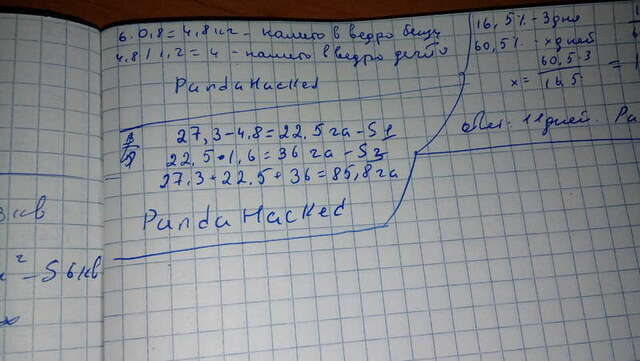 6·0,8=4,8 кг - нашего в ведро
4,8/1,2=4 - нашего ведро
PandaHacked
27,3-4,8=22,5 га - S1
22,5·1,6=36 га - S2
27,3+22,5+36=85,8 га
PandaHacked
16,5% - 3 дня
60,5% - x дней
x= 60,5·3
16,5
=
11 дней. Pa
кв
2 - 56 кв